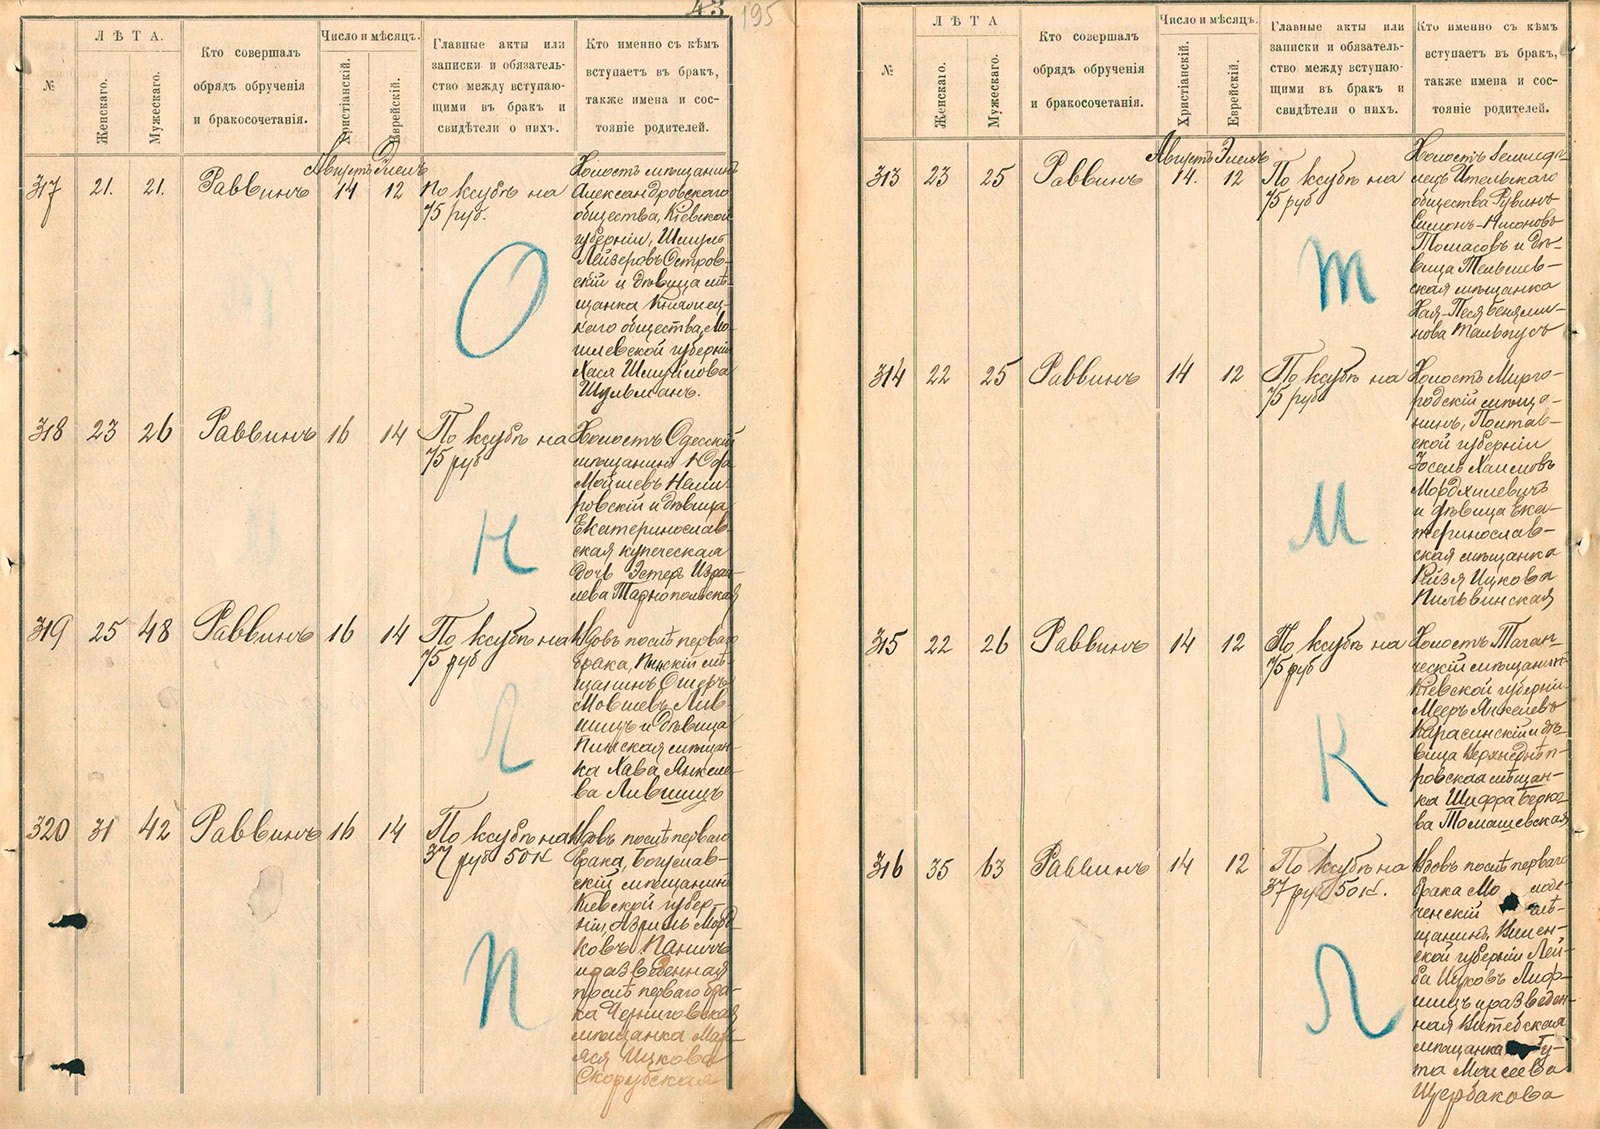 43
195
№
ЛѢТА.
Женскаго.
Мужескаго.
Кто совершалъ
обрядъ обрученія
и бракосочетанія.
Число и мѣсяцъ.
Христіанскій.
Еврейскій.
Главные акты или
записки и обязатель-
ство между вступаю-
щими въ бракъ и
свидѣтели о нихъ.
Кто именно съ кѣмъ
вступаетъ въ бракъ,
также имена и сос-
тояніе родителей.
317
21.
21.
Раввинъ
Августъ
14
Элель
12
По ксубѣ на
75 руб.
О
Холостъ мѣщанинъ
Александровскаго
общества, Кіевской
губерніи, Шмуль
Лейзеровъ Островс-
кій и дѣвица мѣ-
щанка Княжец-
каго общества, Мо-
гилевской губерніи
Хася Шмуйлова
Шульманъ.
318
23
26
Раввинъ
16
14
По ксубѣ на
75 руб
Н
Холостъ Одесскій
мѣщанинъ
Мойшевъ Неми-
ровскій и дѣвица
Екатеринослав-
ская купеческая
дочь Эстеръ Израи-
лева Тарнопольская
319
25
48
Раввинъ
16
14
По ксубѣ на
75 руб
Л
Вдовъ послѣ перваго
брака, Пинскій мѣ-
щанинъ Ошеръ
Мовшевъ Лив-
шицъ и дѣвица
Пинская мѣщан-
ка Хава Янкеле-
ва Лившицъ
320
31
42
Раввинъ
16
14
По ксубѣ на
37 руб 50 к
П
Вдовъ послѣ перваго
брака, Богуслав-
скій мѣщанинъ
Кіевской губер-
ніи, Азриль Морд-
ковъ Паничъ
и разведенная
послѣ перваго бра-
ка Черниговская
мѣщанка Мар-
яся Ицкова
Скорубская
№
ЛѢТА
Женскаго.
Мужескаго.
Кто совершалъ
обрядъ обрученія
и бракосочетанія.
Число и мѣсяцъ.
Христіанскій.
Еврейскій.
Главные акты или
записки и обязатель-
ство между вступаю-
щими въ бракъ и
свидѣтели о нихъ.
Кто именно съ кѣмъ
вступаетъ въ бракъ,
также имена и сос-
тояніе родителей.
313
23
25
Раввинъ
Августъ
14.
Элель
12
По ксубѣ на
75 руб
Т
Холостъ земледѣ-
лецъ Ительскаго
общества Рувинъ
Симонъ-Нисоновъ
Томасовъ и дѣ-
вица Тельшев-
ская мѣщанка
Хая-Песя Беньями-
нова Тальпусъ
314
22
25
Раввинъ
14
12
По ксубѣ на
75 руб
И
Холостъ Мирго-
родскій мѣща-
нинъ, Полтав-
ской губерніи
Іосель Хаимовъ
Мордхилевичъ
и дѣвица Ека-
теринослав-
ская мѣщанка
Рейзя Ицкова
Пильвинская
315
22
26
Раввинъ
14
12
По ксубѣ на
75 руб
К
Холостъ Таган-
ческій мѣщанинъ
Кіевской губерніи
Мееръ Янкелевъ
Карасинскій и дѣ-
вица Верхнеднѣп-
ровская мѣщан-
ка Шифра Берко-
ва Томашевская
316
35
63
Раввинъ
14
12
По ксубѣ на
37 руб 50 к.
Л
Вдовъ послѣ перваго
брака Мо лоде-
ченскій мѣ-
щанинъ, Вилен-
ской губерніи Лей-
ба Ицковъ Лиф-
шицъ и разведен-
ная Витебская
мѣщанка Гу-
та Моисеева
Щербакова